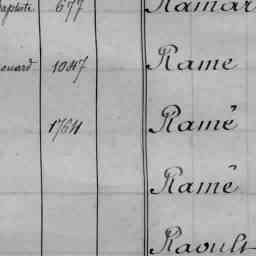 aptiste 677 Ramar
ouard 1047 Rame
1764 Ramé
Ramé
Raoult